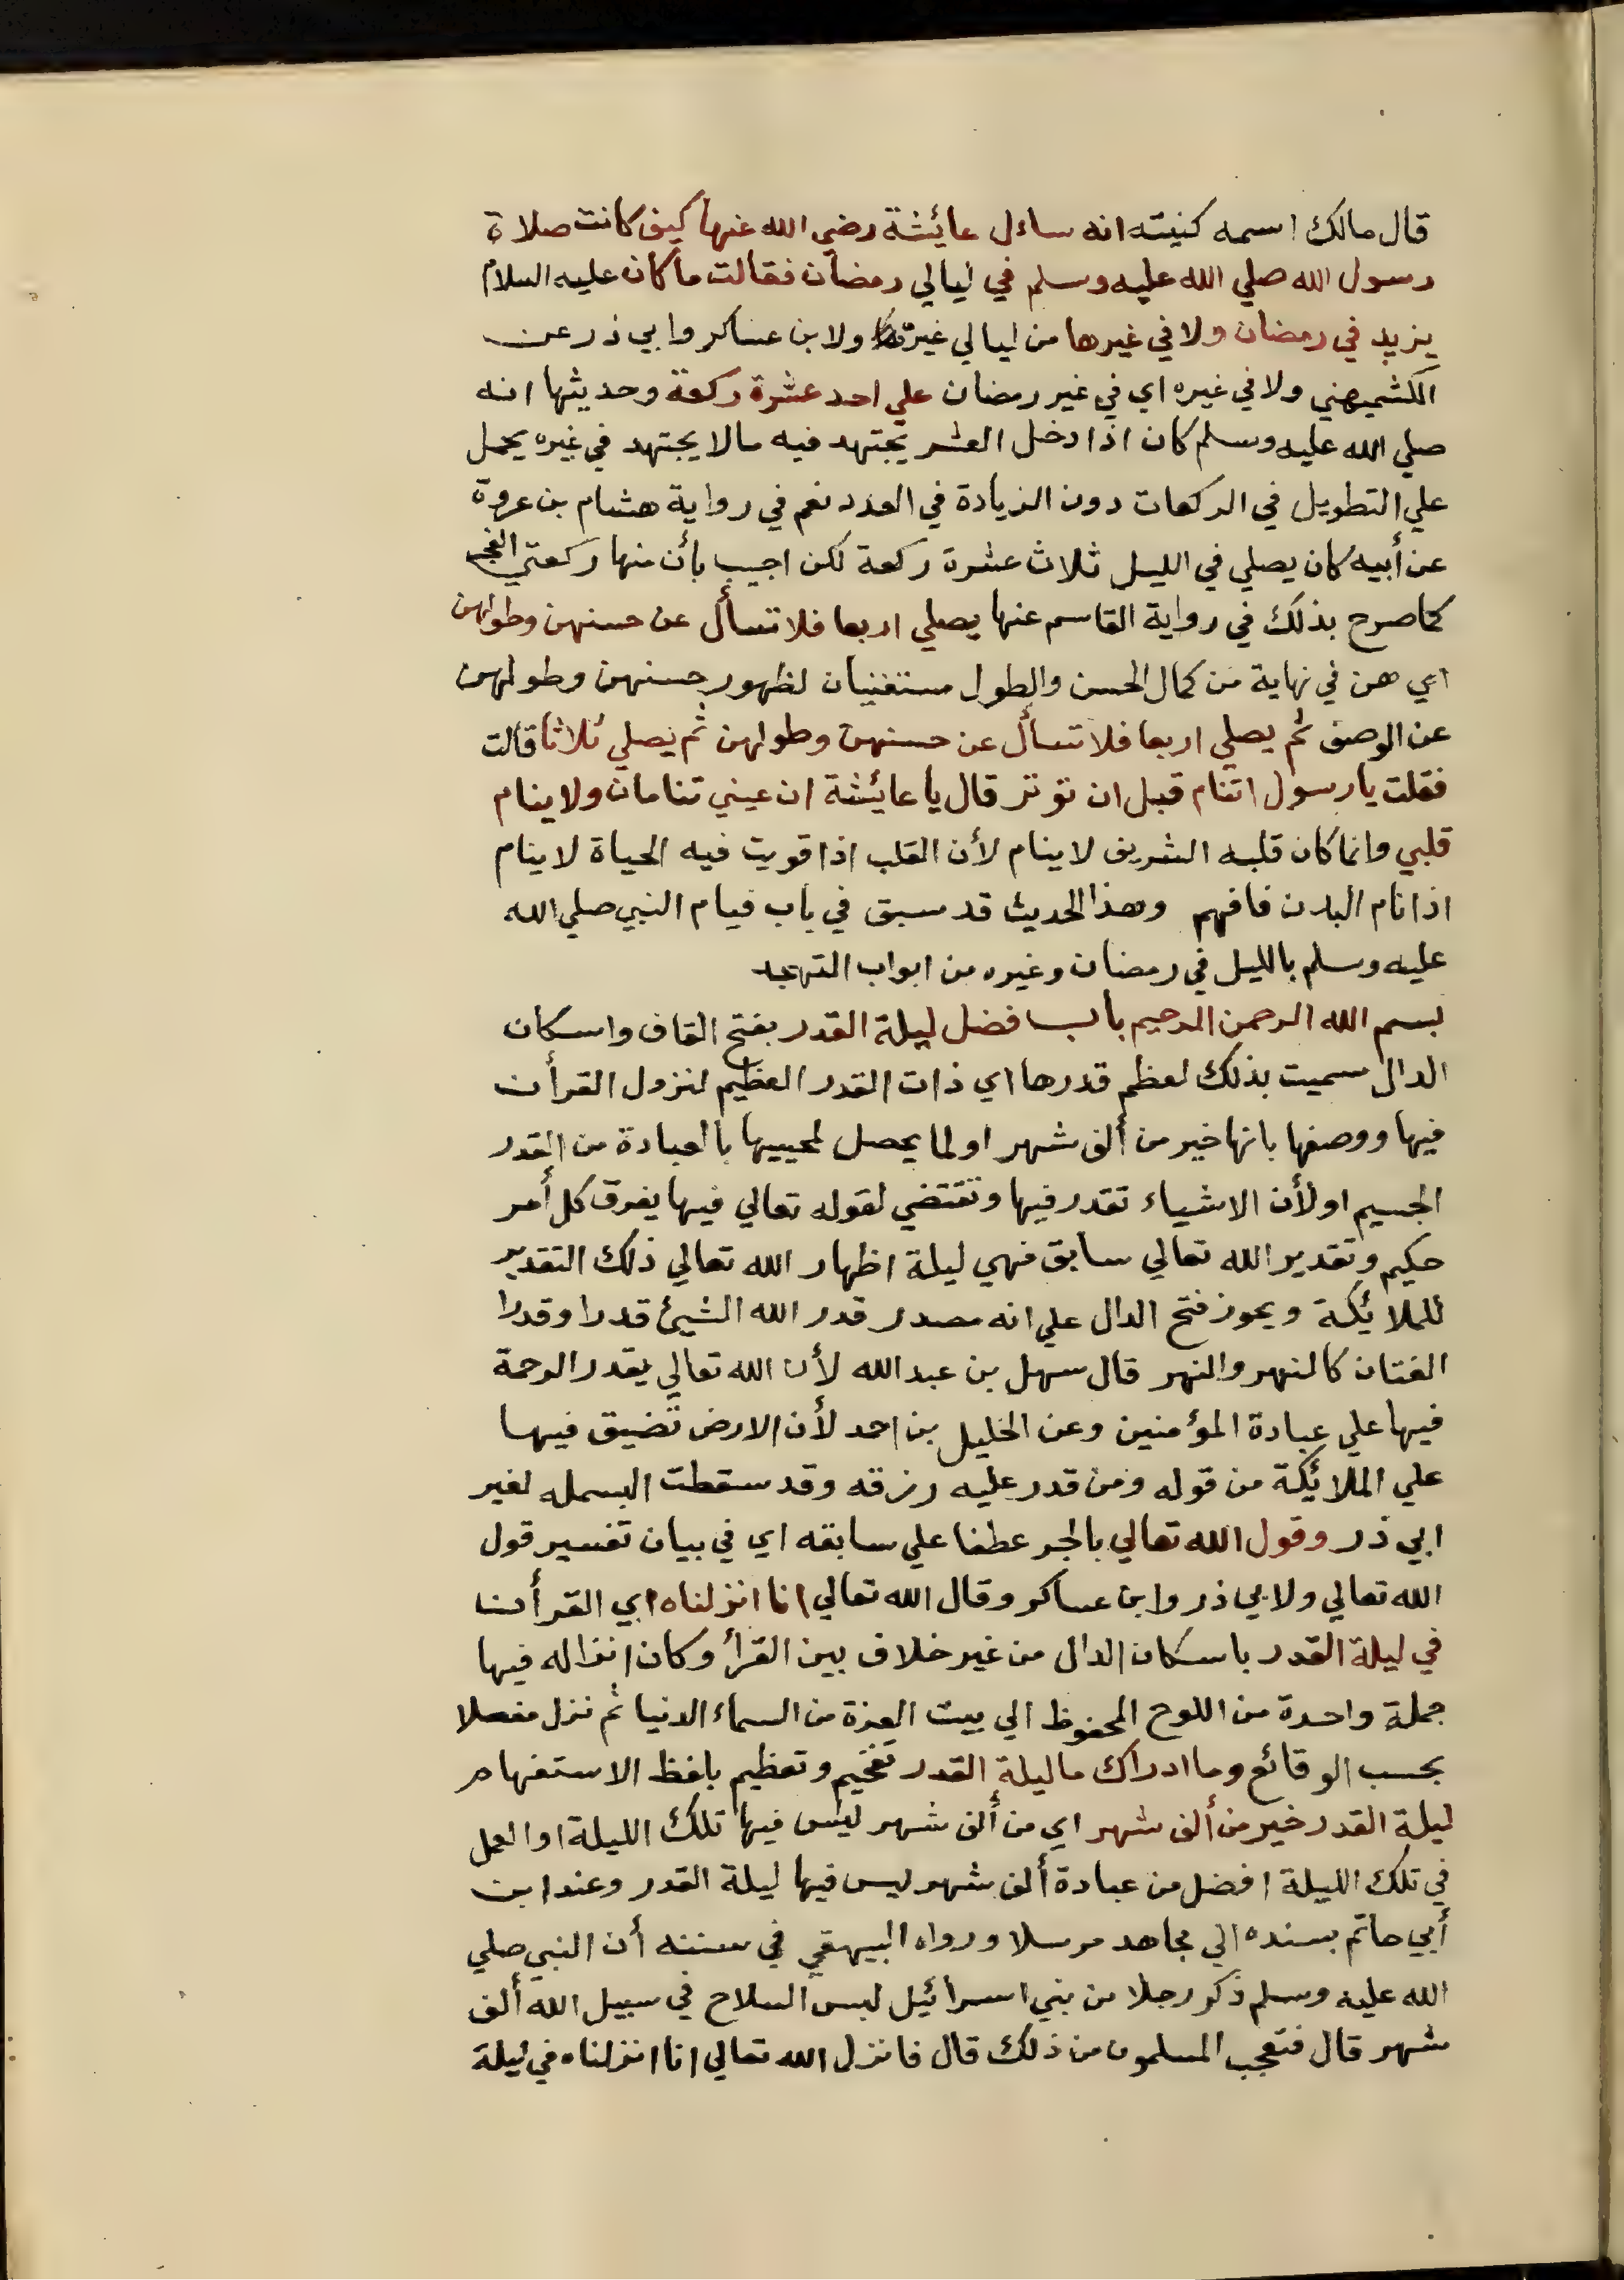 قال مالك اسمه كنيته انه ساءل عايئشة رضي الله عنها كيف كانت صلاة
رسول الله صلي الله عليه وسلم في ليالي رمضان فقالت ما كان عليه السلام
يزيد في رمضان ولا في غيرها من ليالي غيره ولابن عساكر وابي ذر عن
الكشميهني ولا في غيره اي في غير رمضان علي احد عشرة ركعة وحديثها انه
صلي الله عليه وسلم كان اذا دخل العشر يجتهد فيه مالا يجتهد في غيره يحمل
علي التطويل في الركعات دون الزيادة في العدد نعم في رواية هشام بن عروة
عن أبيه كان يصلي في الليل ثلاث عشرة ركعة لكن اجيب بأن منها ركعتي الفجر
كما صرح بذلك في رواية القاسم عنها يصلي اربعا فلا تسأل عن حسنهن وطولهن
اي هن في نهاية من كمال الحسن والطول مستغنيان لظهور حسنهن وطولهن
عن الوصف ثم يصلي اربعا فلا تسأل عن حسنهن وطولهن ثم يصلي ثلاثا قالت
فقلت يا رسول اتنام قبل ان توتر قال يا عايئشة ان عيني تنامان ولا ينام
قلبي وانما كان قلبه الشريف لا ينام لأن القلب اذا قويت فيه الحياة لا ينام
اذا نام البدن فافهم وهذا الحديث قد سبق في باب قيام النبي صلي الله
عليه وسلم بالليل في رمضان وغيره من ابواب التهجد
بسم الله الرحمن الرحيم باب فضل ليلة القدر بفتح القاف واسكان
الدال سميت بذلك لعظم قدرها اي ذات القدر العظيم لنزول القرأن
فيها ووصفها بانها خير من ألف شهر او لما يحصل لمحييها بالعبادة من القدر
الجسيم او لأن الاشياء تقدر فيها وتقتضي لقوله تعالي فيها يفرق كل أمر
حكيم وتقدير الله تعالي سابق فهي ليلة اظهار الله تعالي ذلك التقدير
للملايئكة ويجوز فتح الدال علي انه مصدر قدر الله الشيئ قدرا وقدرا
الغتان كالنهر والنهر قال سهل بن عبد الله لأن الله تعالي يقدر الرحمة
فيها علي عبادة المؤمنين وعن الخليل بن احمد لأن الارض تضيق فيها
علي الملايئكة من قوله ومن قدر عليه رزقه وقد سقطت البسمله لغير
ابي ذر وقول الله تعالي بالجر عطفا علي سابقه اي في بيان تفسير قول
الله تعالي ولابي ذر وابن عساكر وقال الله تعالي انا انزلناه اي القرأن
في ليلة القدر باسكان الدال من غير خلاف بين القرأ وكان انزاله فيها
جملة واحدة من اللوح المحفوظ الي بيت العزة من السماء الدنيا ثم نزل مفصلا
بحسب الوقائع وما ادراك ما ليلة القدر تفخيم وتعظيم بلفظ الاستفهام
ليلة القدر خير من ألف شهر اي من ألف شهر ليس فيها تلك الليلة او العمل
في تلك الليلة افضل من عبادة ألف شهر ليس فيها ليلة القدر وعند ابن
أبي حاتم بسنده الي مجاهد مرسلا ورواه البيهقي في سننه أن النبي صلي
الله عليه وسلم ذكر رجلا من بني اسرائيل لبس السلاح في سبيل الله ألف
شهر قال فتعجب المسلمون من ذلك قال فانزل الله تعالي انا انزلناه في ليلة